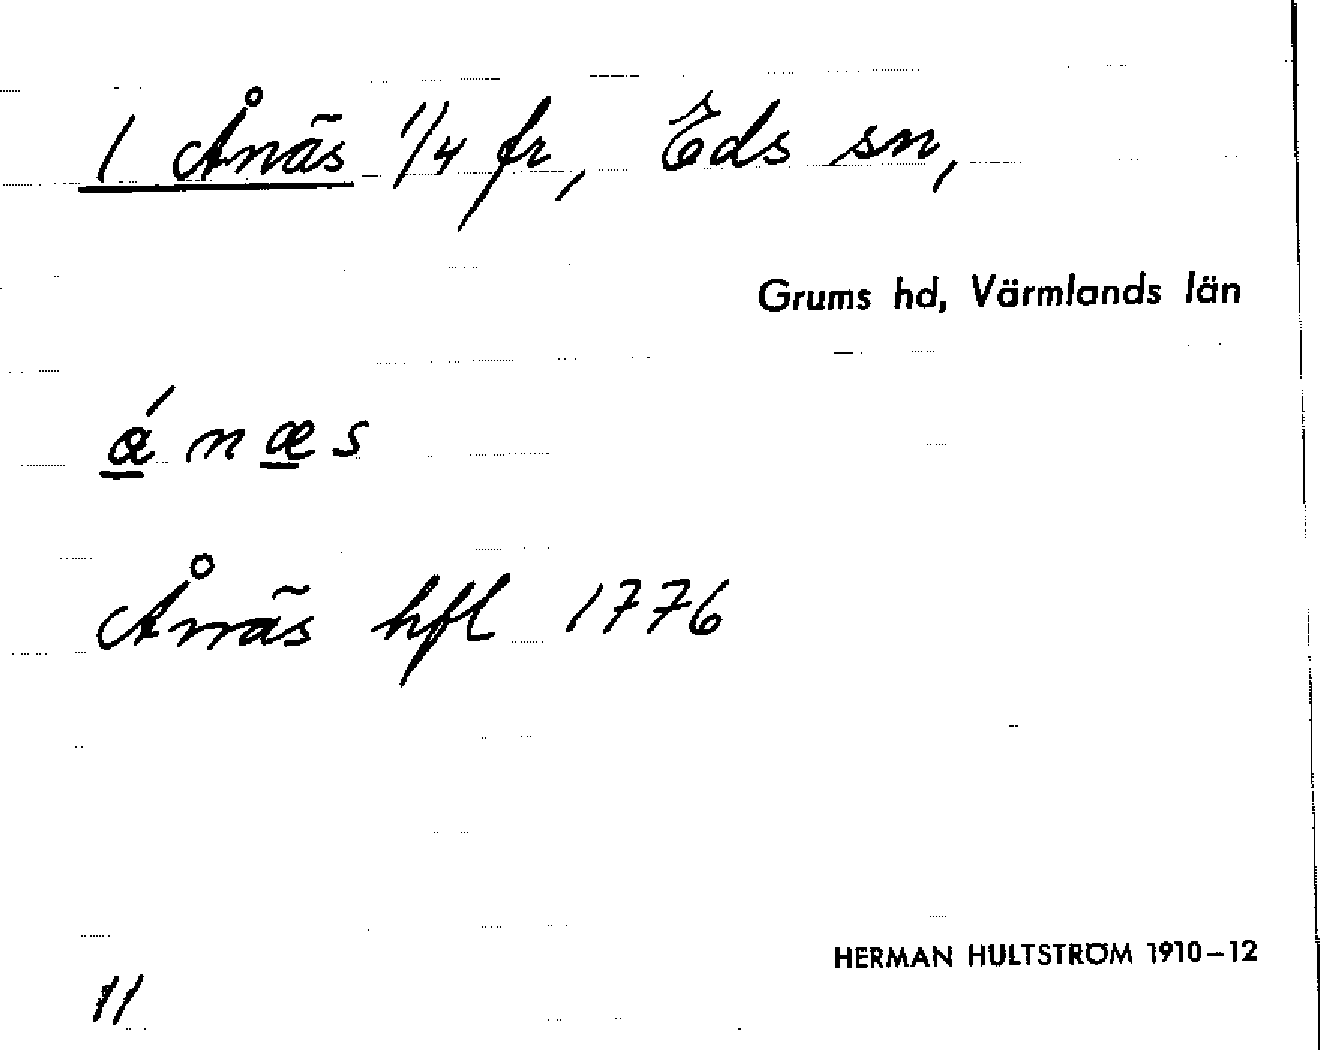 1 Ånäs 1/4 fr, Eds sn,
Grums hd, Värmlands län
ánæs
Ånäs hfl 1776
HERMAN HULTSTRÖM 1910-12
11